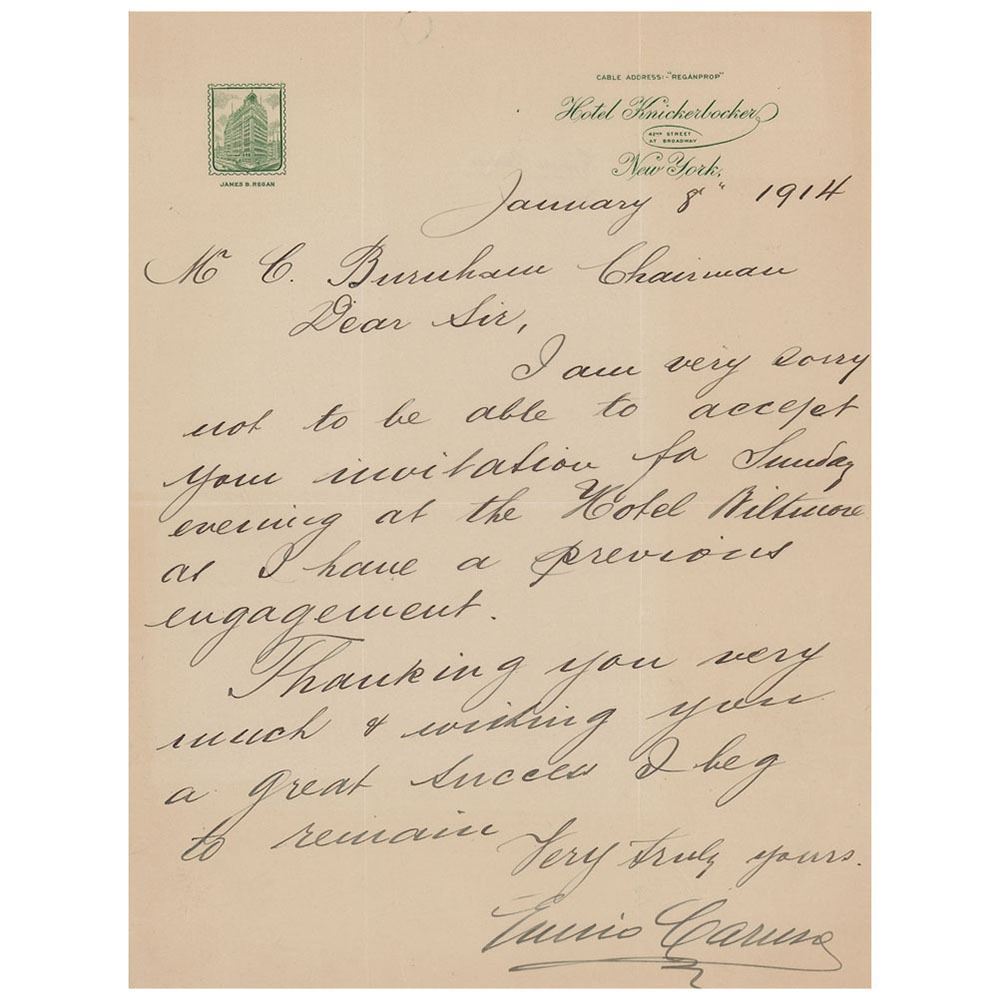 CABLE ADDRESS:-"REGANPROP"
Hotel Knickerbocker
42ND STREET
AT BROADWAY
New York,
JAMES B. REGAN
January 8" 1914
Mr C. Burnham Chairman
Dear Sir,
I am very sorry
not to be able to accept
your invitation fo Sunday
evening at the Hotel Biltmore
as I have a previous
engagement.
Thanking you very
much & wishing you
a great success I beg
to remain
Very truly yours.
Enrico Caruso